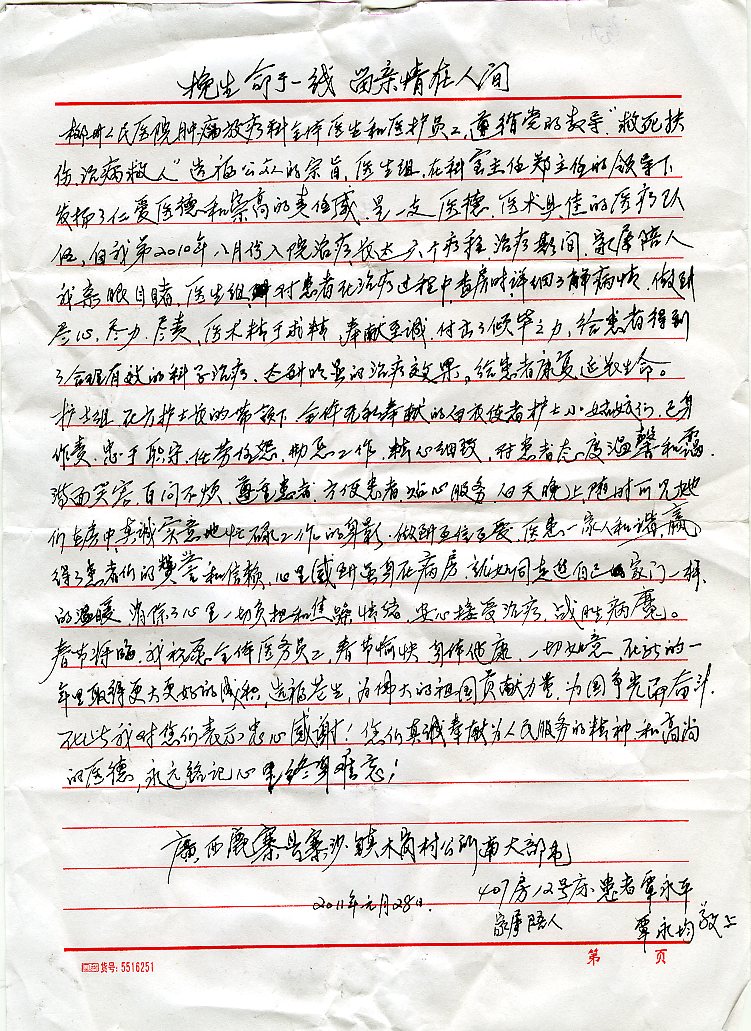 挽生命于一线 留亲情在人间
柳州人民医院肿瘤放疗科全体医生和医护员工,遵循党的教导"救死扶
伤,治病救人"造福公众的宗旨,医生组,在科室主任郑主任的领导下
发扬了仁爱医德和崇高的责任感,是一支医德、医术具佳的医疗队
伍,自我弟2010年八月份入院治疗,长达六个疗程治疗期间,家属陪人
我亲眼目睹,医生组对患者在治疗过程中,查房时详细了解病情,做到
尽心、尽力、尽责,医术精于求精,奉献至诚,付出了倾牢之力,给患者得到
了合理有效的科学治疗,达到明显的治疗效果,给患者康复延续生命。
护士组,在方护士长的带领下,全体无私奉献的白衣使者护士小姑娘们,已身
作责,忠于职守,任劳任怨,勤恳工作,精心细致,对患者态度温馨和霭,
满面笑容,百问不烦,尊重患者,方便患者,贴心服务,白天晚上,随时可见她
们在房中,真诚实意地忙碌工作的身影,做到互信互爱,医患一家人和谐,赢
得了患者们的赞赏和信赖,心里感到虽身在病房,就如同走进自己家门一样
的温暖,消除了心里一切负担和焦躁情绪,安心接受治疗,战胜病魔。
春节将临,我祝愿全体医务员工,春节愉快,身体健康,一切如意,在新的一
年里取得更大更好的成积,造福苍生,为伟大的祖国贡献力量,为国争光而奋斗,
在此我对您们表示忠心感谢!您们真诚奉献为人民服务的精神,和高尚
的医德,永远铭记心里终身难忘!
广西鹿寨县寨沙镇木岗村公所南大部屯
407房12号床患者覃永军
2011年元月28日.
家属陪人 覃永均敬上
货号:5516251
第 页